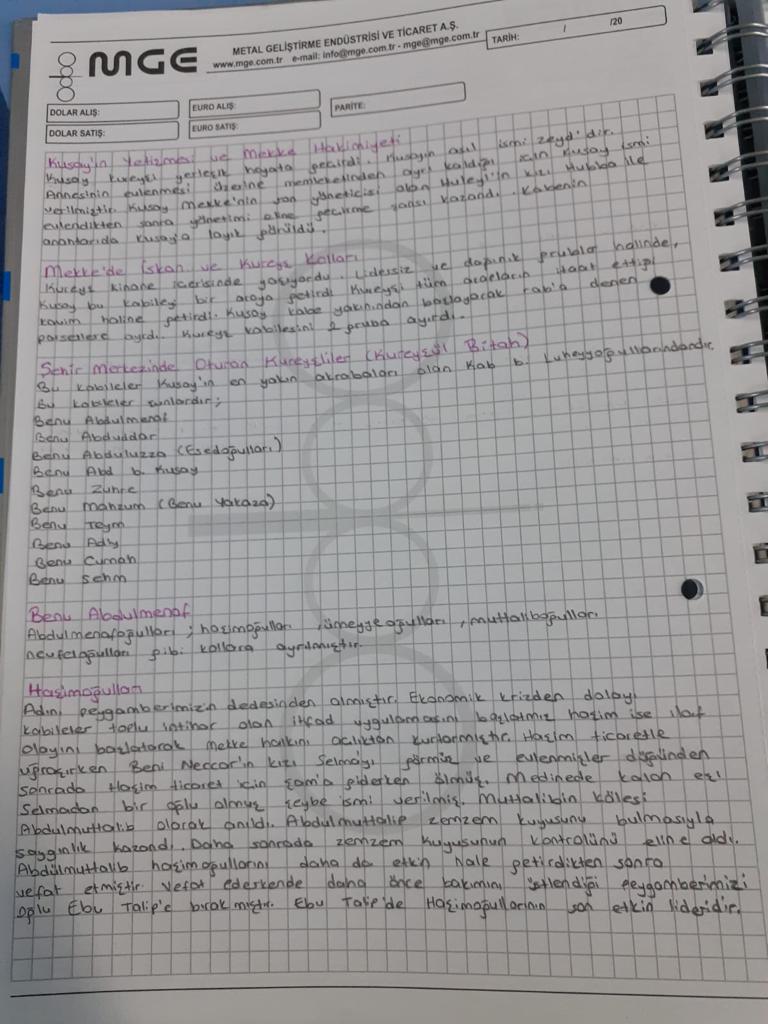 MGE
METAL GELİŞTİRME ENDÜSTRİSİ VE TİCARET A.Ş.
www.mge.com.tr e-mail: info@mge.com.tr - mge@mge.com.tr
TARİH: / /20
DOLAR ALIŞ: EURO ALIŞ: PARİTE:
DOLAR SATIŞ: EURO SATIŞ:
Kusay'ın Yetişmesi ve Mekke Hakimiyeti
Kusay kureyşi yerleşik hayata geçirdi. Kusayın asıl ismi zeyd'dir.
Annesinin evlenmesi üzerine memleketinden ayrı kaldığı için Kusay ismi
verilmiştir. Kusay mekke'nin son yöneticisi olan Huleyl'in kızı Hubba ile
evlendikten sonra yönetimi eline geçirme şansı kazandı. Kabenin
anahtarıda Kusay'a layık görüldü.
Mekke'de İskan ve Kureyş Kolları
Kureyş kinane içerisinde yaşıyordu. Lidersiz ve dağınık grublar halinde,
Kusay bu kabileyi bir araya getirdi Kureyşi tüm arapların itaat ettiği
kavim haline getirdi. Kusay kabe yakınından başlayarak rab'a denen
parsellere ayırdı. Kureyş kabilesini 2 gruba ayırdı.
Şehir Merkezinde Oturan Kureyşliler (Kureyşül Bitah)
Bu kabileler Kusay'ın en yakın akrabaları olan Kab b. Luheyyoğullarındandır.
Bu kabileler şunlardır;
Benu Abdulmenaf
Benu Abduddar
Benu Abduluzza (Esedoğulları)
Benu Abd b. Kusay
Benu Zuhre
Benu mahzum (Benu Yakaza)
Benu Teym
Benu Ady
Benu Cumah
Benu Sehm
Benu Abdulmenaf
Abdulmenafoğulları ; haşimoğulları, ümeyyeoğulları, muttaliboğulları
nevfeloğulları gibi kollara ayrılmıştır.
Haşimoğulları
Adını peygamberimizin dedesinden almıştır. Ekonomik krizden dolayı
kabileler toplu intihar olan itifad uygulamasını başlatmış haşim ise ilaf
olayını başlatarak mekke halkını açlıktan kurtarmıştır. Haşim ticaretle
uğraşırken Beni Neccar'ın kızı Selma'yı görmüş ve evlenmişler düğünden
sonrada Haşim ticaret için şam'a giderken ölmüş. Medinede kalan eşi
Selmadan bir oğlu olmuş şeybe ismi verilmiş. Muttalibin kölesi
Abdulmuttalib olarak anıldı. Abdulmuttalip zemzem kuyusunu bulmasıyla
saygınlık kazandı. Daha sonrada zemzem kuyusunun kontrolünü eline aldı.
Abdülmuttalib haşimoğullarını daha da etkin hale getirdikten sonra
vefat etmiştir. Vefat ederkende daha önce bakımını üstlendiği peygamberimizi
oğlu Ebu Talip'e bırakmıştır. Ebu Talip'de Haşimoğullarının son etkin lideridir.